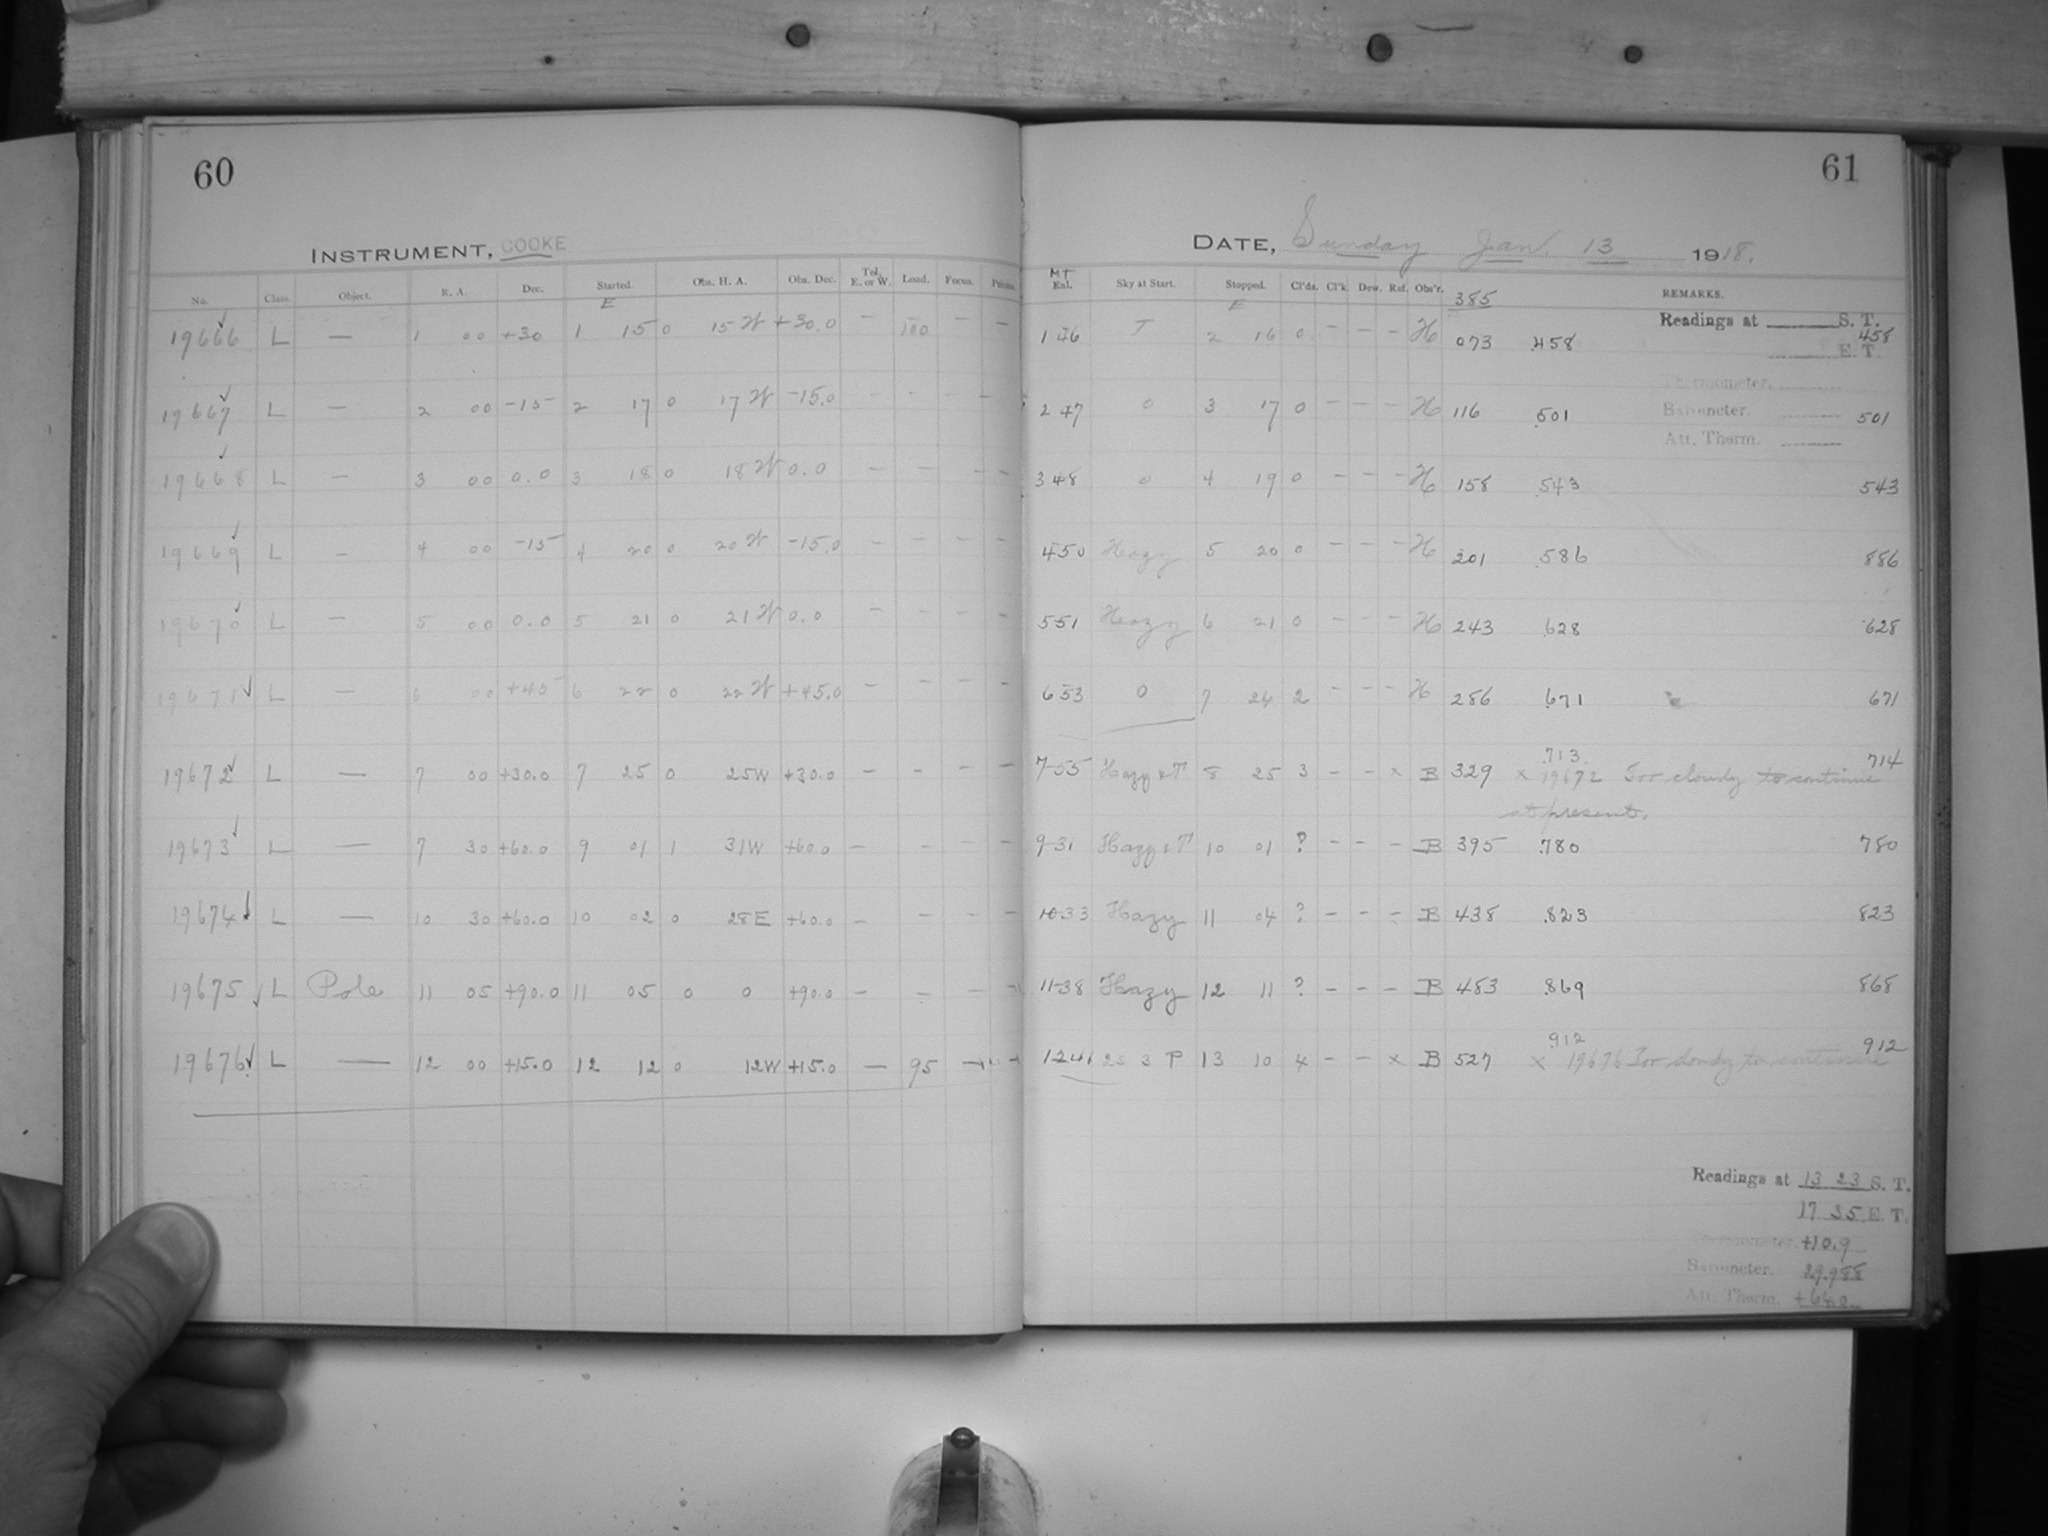 60
INSTRUMENT, COOKE
No. Class. Object. R. A. Dec. Started. Obs. H. A. Obs. Dec. Tel. E. or W. Load. Focus. Prisms.
E
19666 L — 1 00 +30 1 15 0 15 W +30.0 — 100 — —
19667 L — 2 00 -15 2 17 0 17 W -15.0 - - - -
19668 L — 3 00 0.0 3 18 0 18 W 0.0 - - - -
19669 L — 4 00 -15 4 20 0 20 W -15.0 - - - -
19670 L — 5 00 0.0 5 21 0 21 W 0.0 - - - -
19671 L — 6 00 +45 6 22 0 22 W +45.0 - - - -
19672 L — 7 00 +30.0 7 25 0 25W +30.0 - - - -
19673 L — 7 30 +60.0 9 01 1 31W +60.0 - - - -
19674 L — 10 30 +60.0 10 02 0 28E +60.0 - - - -
19675 L Pole 11 05 +90.0 11 05 0 0 +90.0 - - - -
19676 L — 12 00 +15.0 12 12 0 12W +15.0 — 95 - -
61
DATE, Sunday Jan. 13 1918.
MT
Enl. Sky at Start. Stopped. Cl'ds. Cl'k. Dew. Ref. Obs'r. 385 REMARKS.
E
Readings at S. T.
1 46 T 2 16 0 - - - H 073 .458 458
E. T.
Thermometer.
2 47 0 3 17 0 - - - H 116 .501 Barometer. 501
Att. Therm.
3 48 0 4 19 0 - - - H 158 .543 543
4 50 Hazy 5 20 0 - - - H 201 .586 886
5 51 Hazy 6 21 0 - - - H 243 .628 628
6 53 0 7 24 2 - - - H 286 .671 671
.713 714
7-55 Hazy & T 8 25 3 - - x B 329 x 19672 Too cloudy to continue
at present.
9-31 Hazy & T 10 01 ? - - - B 395 .780 780
10-33 Hazy 11 04 ? - - - B 438 .823 823
11-38 Hazy 12 11 ? - - - B 483 .869 868
.912 912
12 41 2S 3 P 13 10 4 - - x B 527 x 19676 Too cloudy to continue
Readings at 13 23 S. T.
17 35 E. T.
Thermometer. +10.9
Barometer. 29.988
Att. Therm.